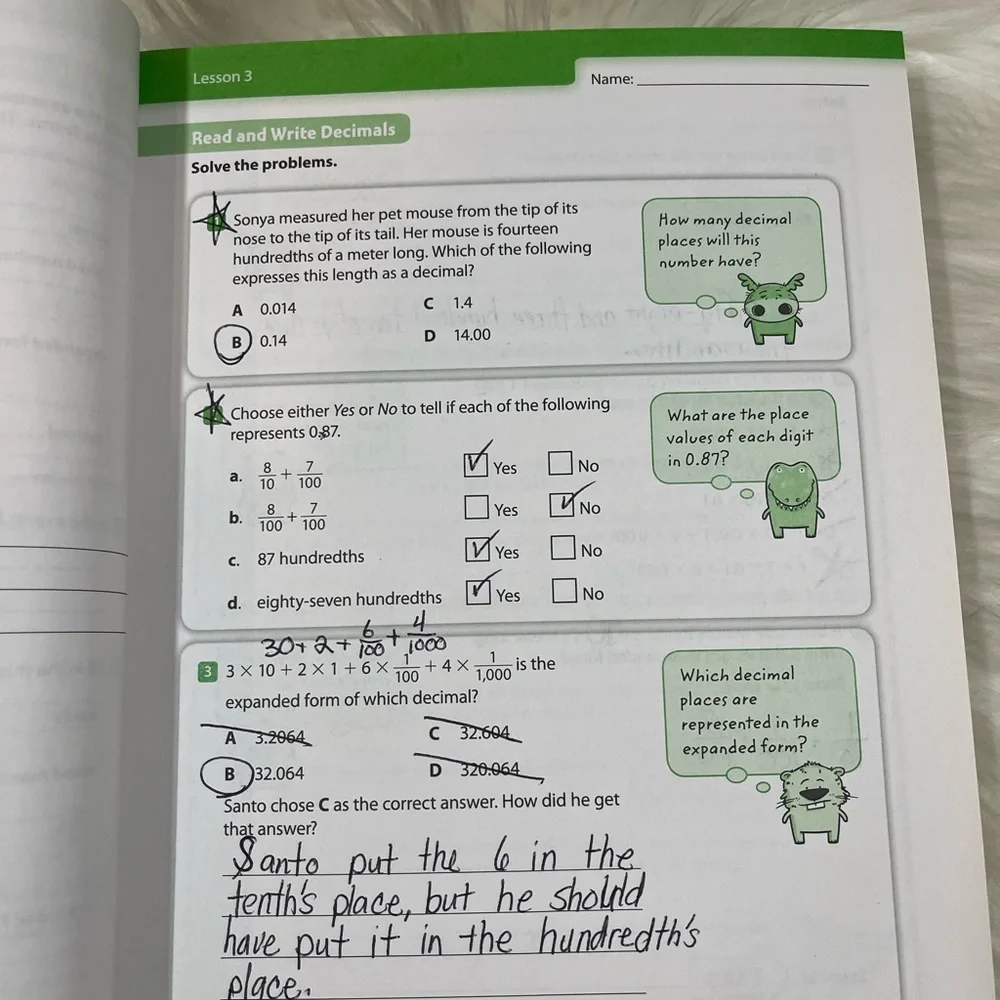 Lesson 3
Name:
Read and Write Decimals
Solve the problems.
Sonya measured her pet mouse from the tip of its
nose to the tip of its tail. Her mouse is fourteen
hundredths of a meter long. Which of the following
expresses this length as a decimal?
A 0.014
C 1.4
B 0.14
D 14.00
How many decimal
places will this
number have?
Choose either Yes or No to tell if each of the following
represents 0.87.
a. 8/10 + 7/100
Yes No
b. 8/100 + 7/100
Yes No
c. 87 hundredths
Yes No
d. eighty-seven hundredths
Yes No
What are the place
values of each digit
in 0.87?
30+2+6/100+4/1000
3 3 × 10 + 2 × 1 + 6 × 1/100 + 4 × 1/1,000 is the
expanded form of which decimal?
A 3.2064
C 32.604
B 32.064
D 320.064
Which decimal
places are
represented in the
expanded form?
Santo chose C as the correct answer. How did he get
that answer?
Santo put the 6 in the
tenth's place, but he should
have put it in the hundredth's
place.